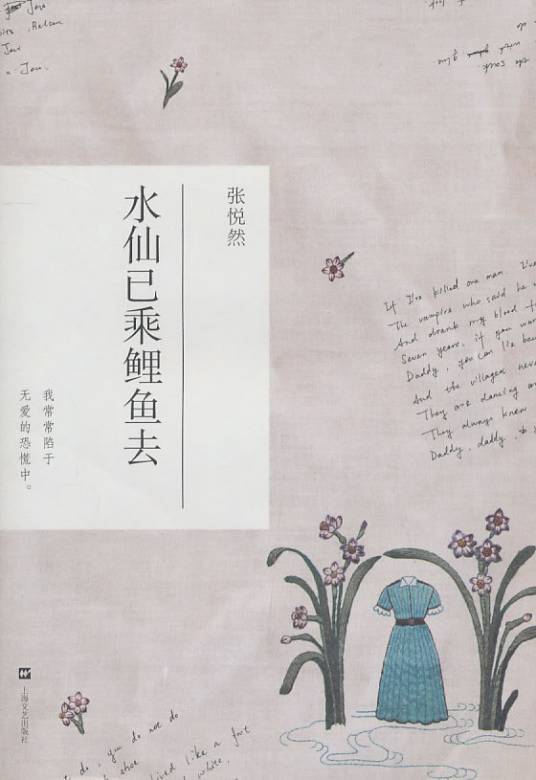 Jess
Jess
张悦然
水仙已乘鲤鱼去
我常常陷于
无爱的恐慌中。
If I've killed one man, I've
The vampire who said he w
And drank my blood f
Seven years, if you wan
Daddy, you can lie bac
And the villagers neve
They are dancing an
They always knew
Daddy, daddy, y
do, you do not do
shoe
lived like a foot
white,
上海文艺出版社